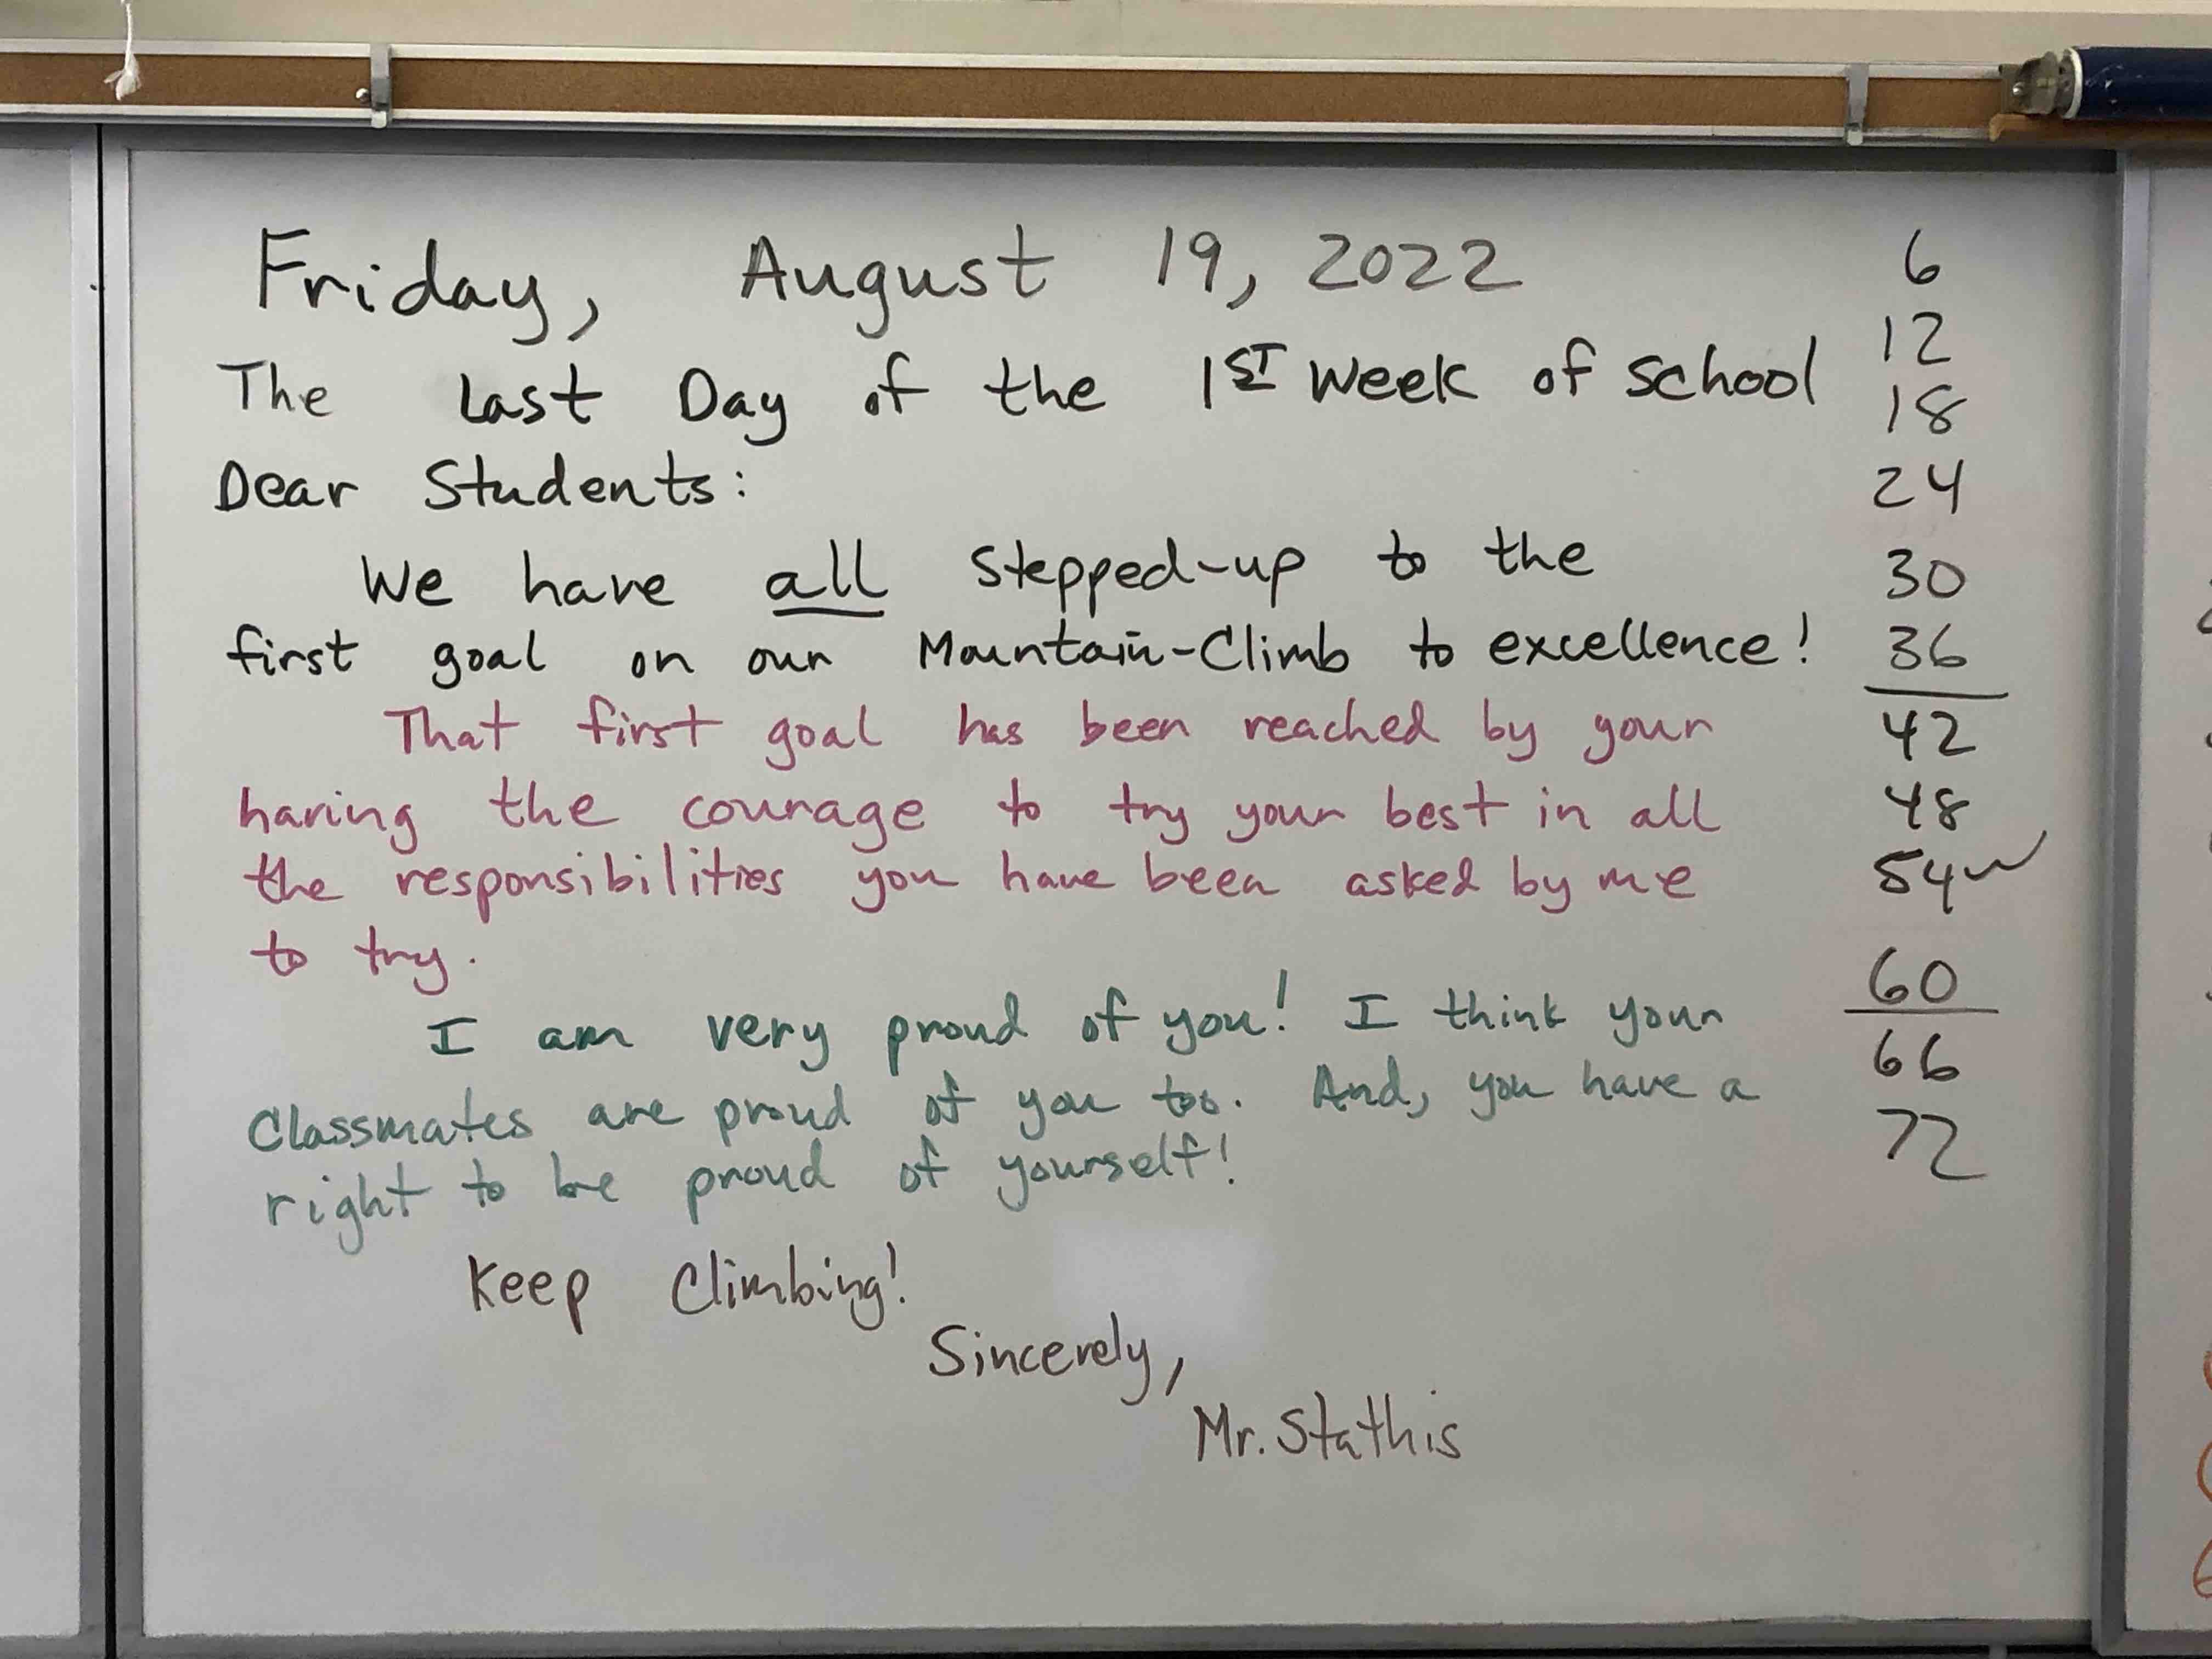 Friday, August 19, 2022
The Last Day of the 1ST Week of School
Dear Students:
We have all stepped-up to the
first goal on our Mountain-Climb to excellence!
That first goal has been reached by your
having the courage to try your best in all
the responsibilities you have been asked by me
to try.
I am very proud of you! I think your
Classmates are proud of you too. And, you have a
right to be proud of yourself!
Keep Climbing!
Sincerely,
Mr. Stathis
6
12
18
24
30
36
42
48
54
60
66
72